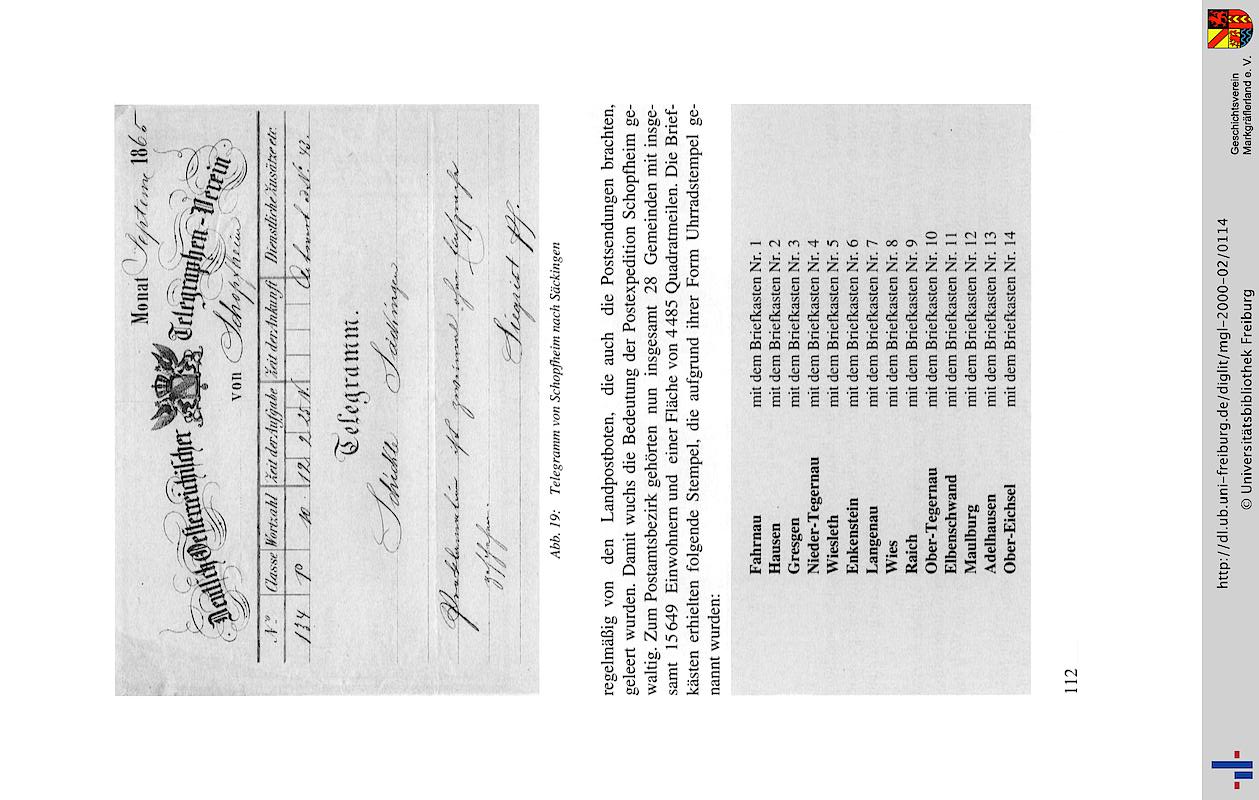 Monat Septemr 1865
Deutsch-Oesterreichischer Telegraphen-Verein
von Schopfheim
No Classe Wortzahl Zeit der Aufgabe Zeit der Ankunft Dienstliche Zusätze etc.
134 P 10. 12 2 25 N.
Telegramm.
Säckingen
ist
Abb. 19: Telegramm von Schopfheim nach Säckingen
regelmäßig von den Landpostboten, die auch die Postsendungen brachten,
geleert wurden. Damit wuchs die Bedeutung der Postexpedition Schopfheim ge-
waltig. Zum Postamtsbezirk gehörten nun insgesamt 28 Gemeinden mit insge-
samt 15 649 Einwohnern und einer Fläche von 4 485 Quadratmeilen. Die Brief-
kästen erhielten folgende Stempel, die aufgrund ihrer Form Uhrradstempel ge-
nannt wurden:
Fahrnau mit dem Briefkasten Nr. 1
Hausen mit dem Briefkasten Nr. 2
Gresgen mit dem Briefkasten Nr. 3
Nieder-Tegernau mit dem Briefkasten Nr. 4
Wiesleth mit dem Briefkasten Nr. 5
Enkenstein mit dem Briefkasten Nr. 6
Langenau mit dem Briefkasten Nr. 7
Wies mit dem Briefkasten Nr. 8
Raich mit dem Briefkasten Nr. 9
Ober-Tegernau mit dem Briefkasten Nr. 10
Elbenschwand mit dem Briefkasten Nr. 11
Maulburg mit dem Briefkasten Nr. 12
Adelhausen mit dem Briefkasten Nr. 13
Ober-Eichsel mit dem Briefkasten Nr. 14
112
http://dl.ub.uni-freiburg.de/diglit/mgl-2000-02/0114
© Universitätsbibliothek Freiburg
Geschichtsverein
Markgräflerland e. V.